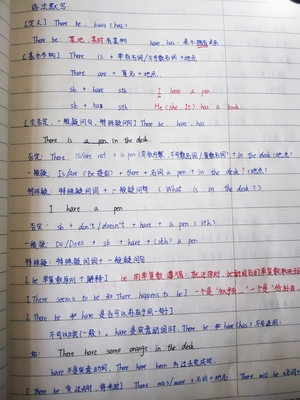 语法默写:
[定义] There be, have (has)
There be: 某地,某时有某物 have, has: 表示拥有关系
[基本结构] There is + 单数名词/不可数名词+地点
There are + 复名+地点.
sb + have sth. I have a pen.
sb + has sth. He (She, It) has a book.
[变否定,一般疑问句,特殊疑问] There be, have, has
There is a pen in the desk.
否定: There is/are not + a pen + in the desk (地点)
一般疑: Is/Are (Be 提前) + there + 名词 a pen + in the desk? (地点)
特殊疑: 特殊疑问词+一般疑问句 (What is on the desk?)
I have a pen.
否定: sb + don't/doesn't + have + a pen (sth)
一般疑: Do/Does + sb + have + (sth) a pen.
特殊疑: 特殊疑问词+一般疑问句
[be 单复数原则+解释] be 的单复数 遵循:就近原则,
[There seems to be 和 There happens to be] 一个是"似乎有…"一个是"恰好有
[There be 和 have 是否可以存在于同一句?]
不可以共(一般), have 是实意动词时. There be 和 have (has) 不可连用:
如: There have some orange in the desk
have 不是实意动词, There have been 为过去完成时.
[There be 变过去时,将来时] There was/were + 名词+地点. There will be +名词